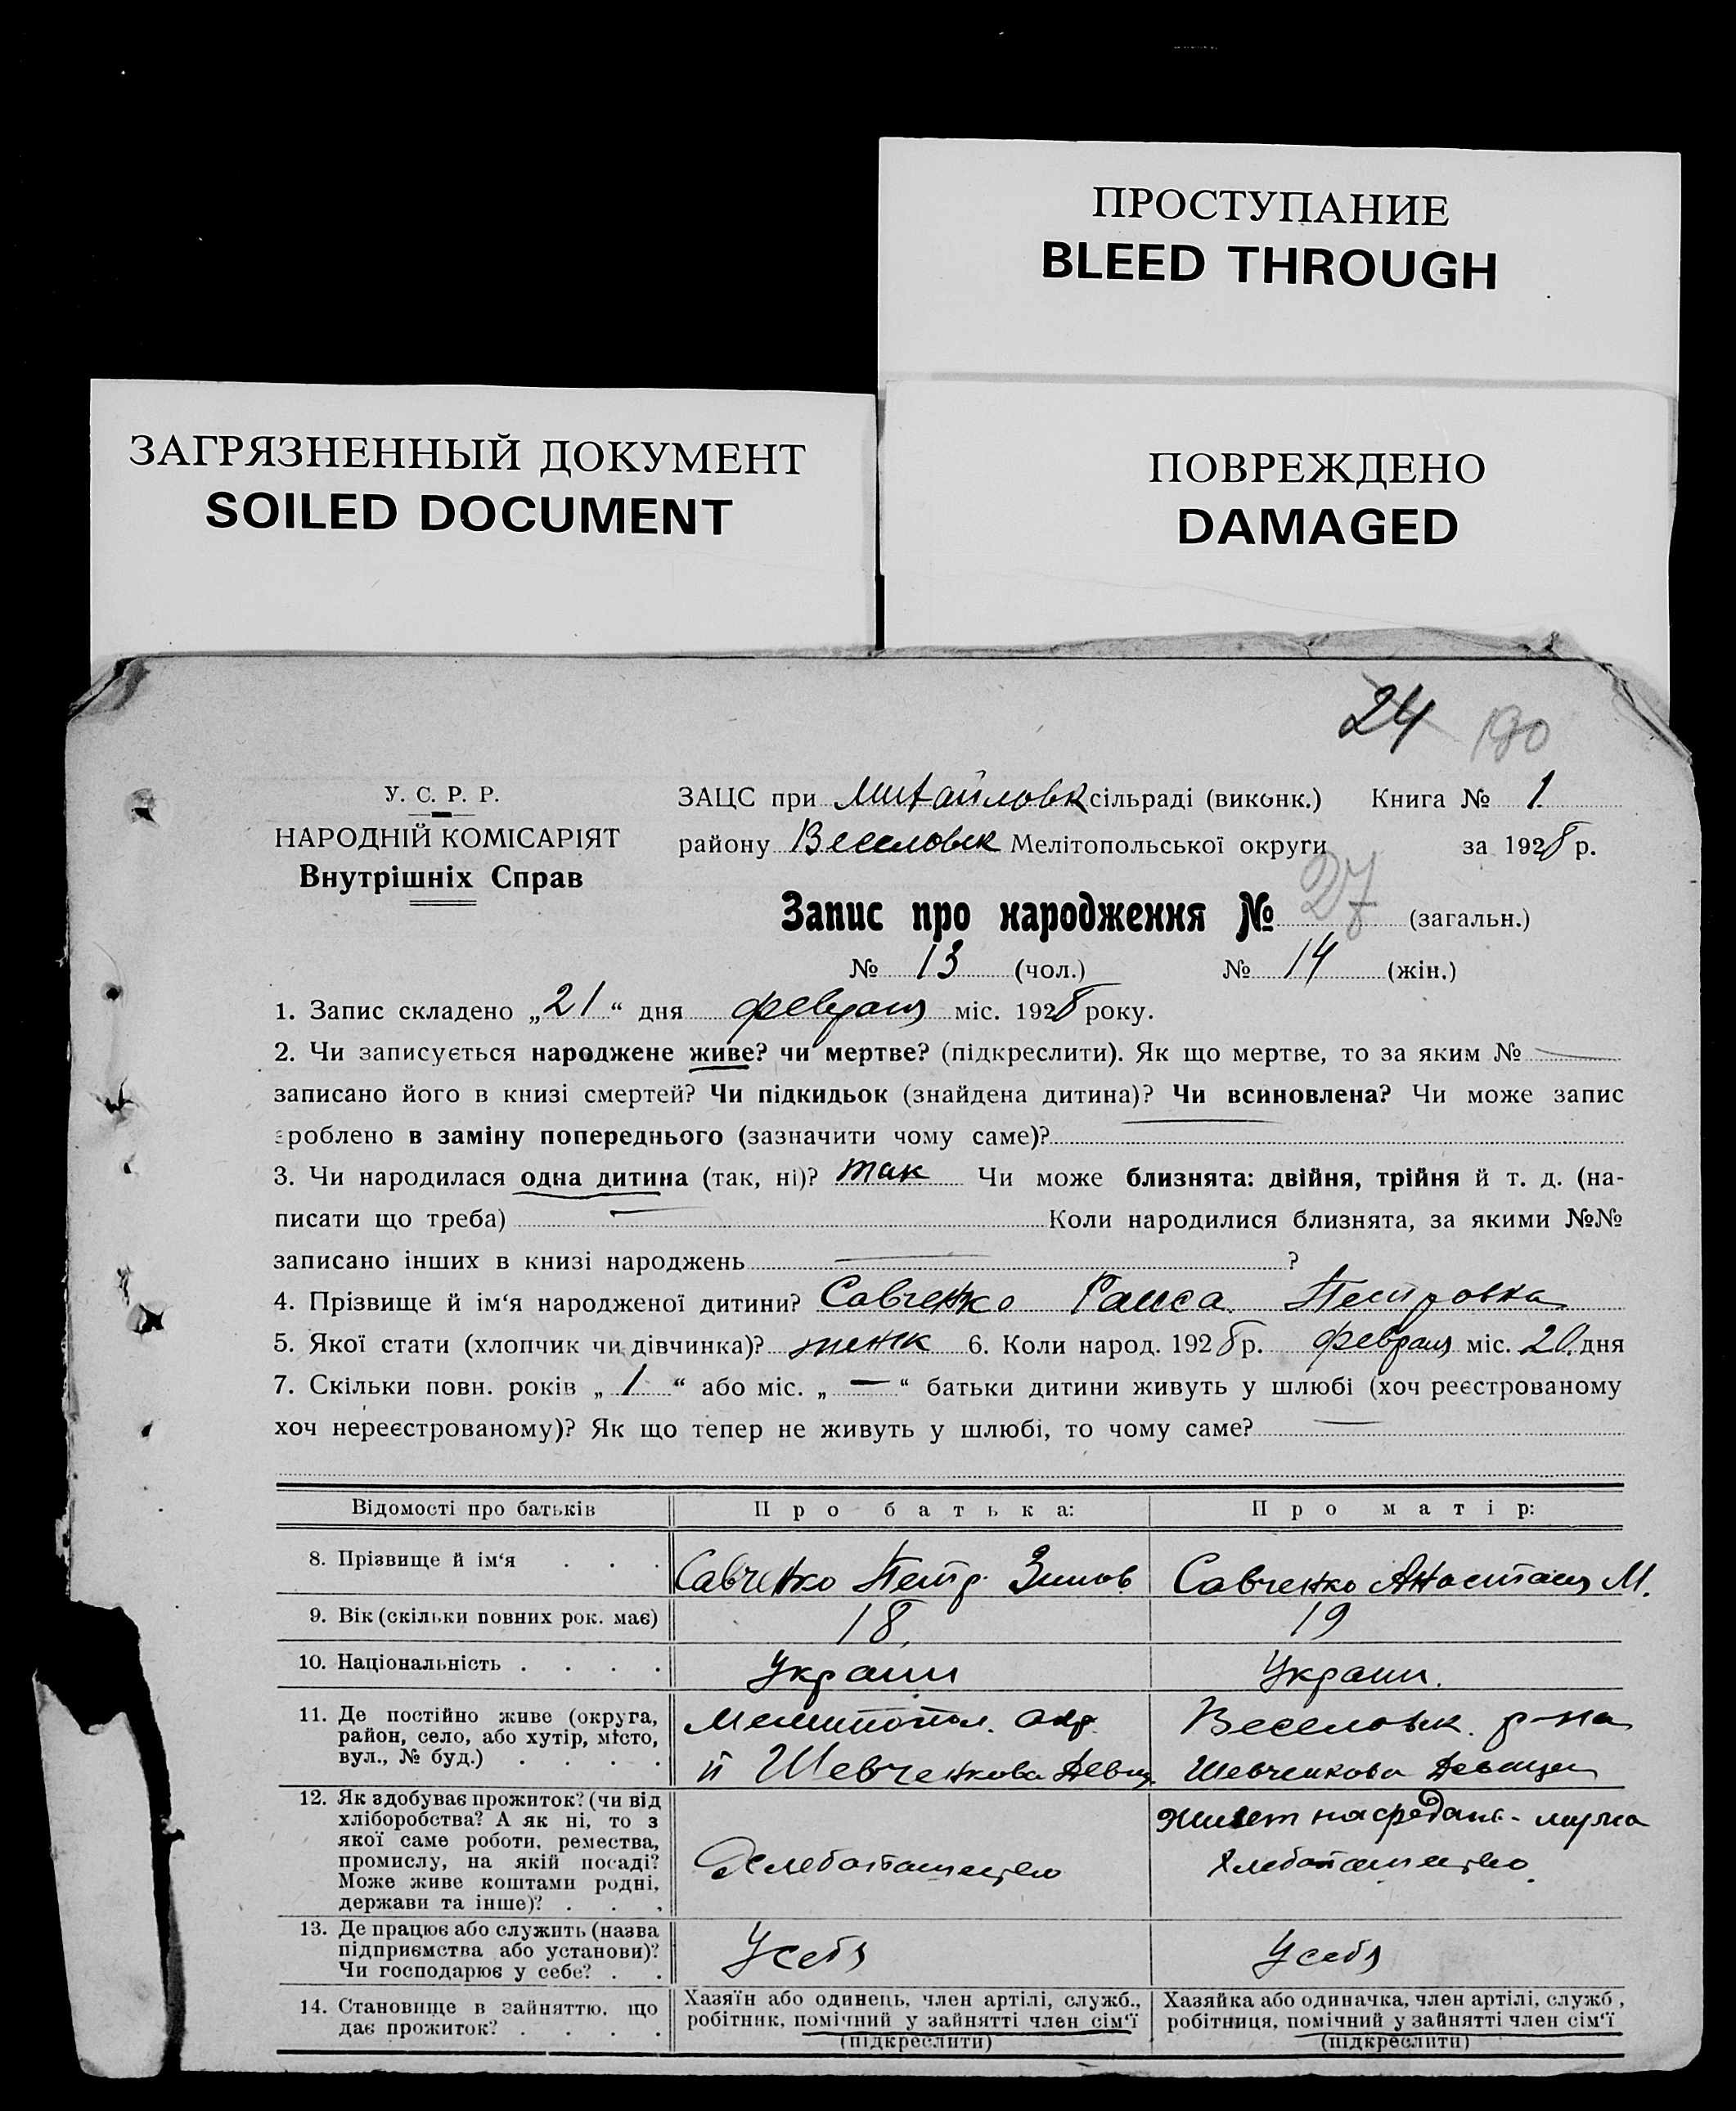 ПРОСТУПАНИЕ
BLEED THROUGH
ЗАГРЯЗНЕННЫЙ ДОКУМЕНТ
SOILED DOCUMENT
ПОВРЕЖДЕНО
DAMAGED
24 190
У. С. Р. Р.
НАРОДНІЙ КОМІСАРІЯТ
Внутрішніх Справ
ЗАЦС при Михайловк сільраді (виконк.) Книга № 1
району Веселовск Мелітопольської округи за 1928 р.
Запис про народження № 27 (загальн.)
№ 13 (чол.) № 14 (жін.)
1. Запис складено „21“ дня февраля міс. 1928 року.
2. Чи записується народжене живе? чи мертве? (підкреслити). Як що мертве, то за яким №
записано його в книзі смертей? Чи підкидьок (знайдена дитина)? Чи всиновлена? Чи може запис
зроблено в заміну попереднього (зазначити чому саме)?
3. Чи народилася одна дитина (так, ні)? так Чи може близнята: двійня, трійня й т. д. (на-
писати що треба) — Коли народилися близнята, за якими №№
записано інших в книзі народжень — ?
4. Прізвище й ім‘я народженої дитини? Савченко Раиса Петровна
5. Якої стати (хлопчик чи дівчинка)? женк 6. Коли народ. 1928 р. февраля міс. 20 дня
7. Скільки повн. років „1“ або міс. „—“ батьки дитини живуть у шлюбі (хоч реєстрованому
хоч нереєстрованому)? Як що тепер не живуть у шлюбі, то чому саме? —
Відомості про батьків Про батька: Про матір:
8. Прізвище й ім‘я . . . Савченко Петр Зинов Савченко Анастасия М.
9. Вік (скільки повних рок. має) 18 19
10. Національність . . . . Украин Украин.
11. Де постійно живе (округа,
район, село, або хутір, місто,
вул., № буд.) . . . .
Мелитопол. окр.
п Шевченкова
Веселовск. р-на
Шевченкова
12. Як здобуває прожиток? (чи від
хліборобства? А як ні, то з
якої саме роботи, ремества,
промислу, на якій посаді?
Може живе коштами родні,
держави та інше)? . . .
Хлебопашество
Живет на средств. мужа
хлебопашество
13. Де працює або служить (назва
підприємства або установи)?
Чи господарює у себе? . .
У себя
У себя
14. Становище в зайняттю, що
дає прожиток? . . . .
Хазяїн або одинець, член артілі, служб.,
робітник, помічний у зайнятті член сім‘ї
(підкреслити)
Хазяйка або одиначка, член артілі, служб,
робітниця, помічний у зайнятті член сім‘ї
(підкреслити)